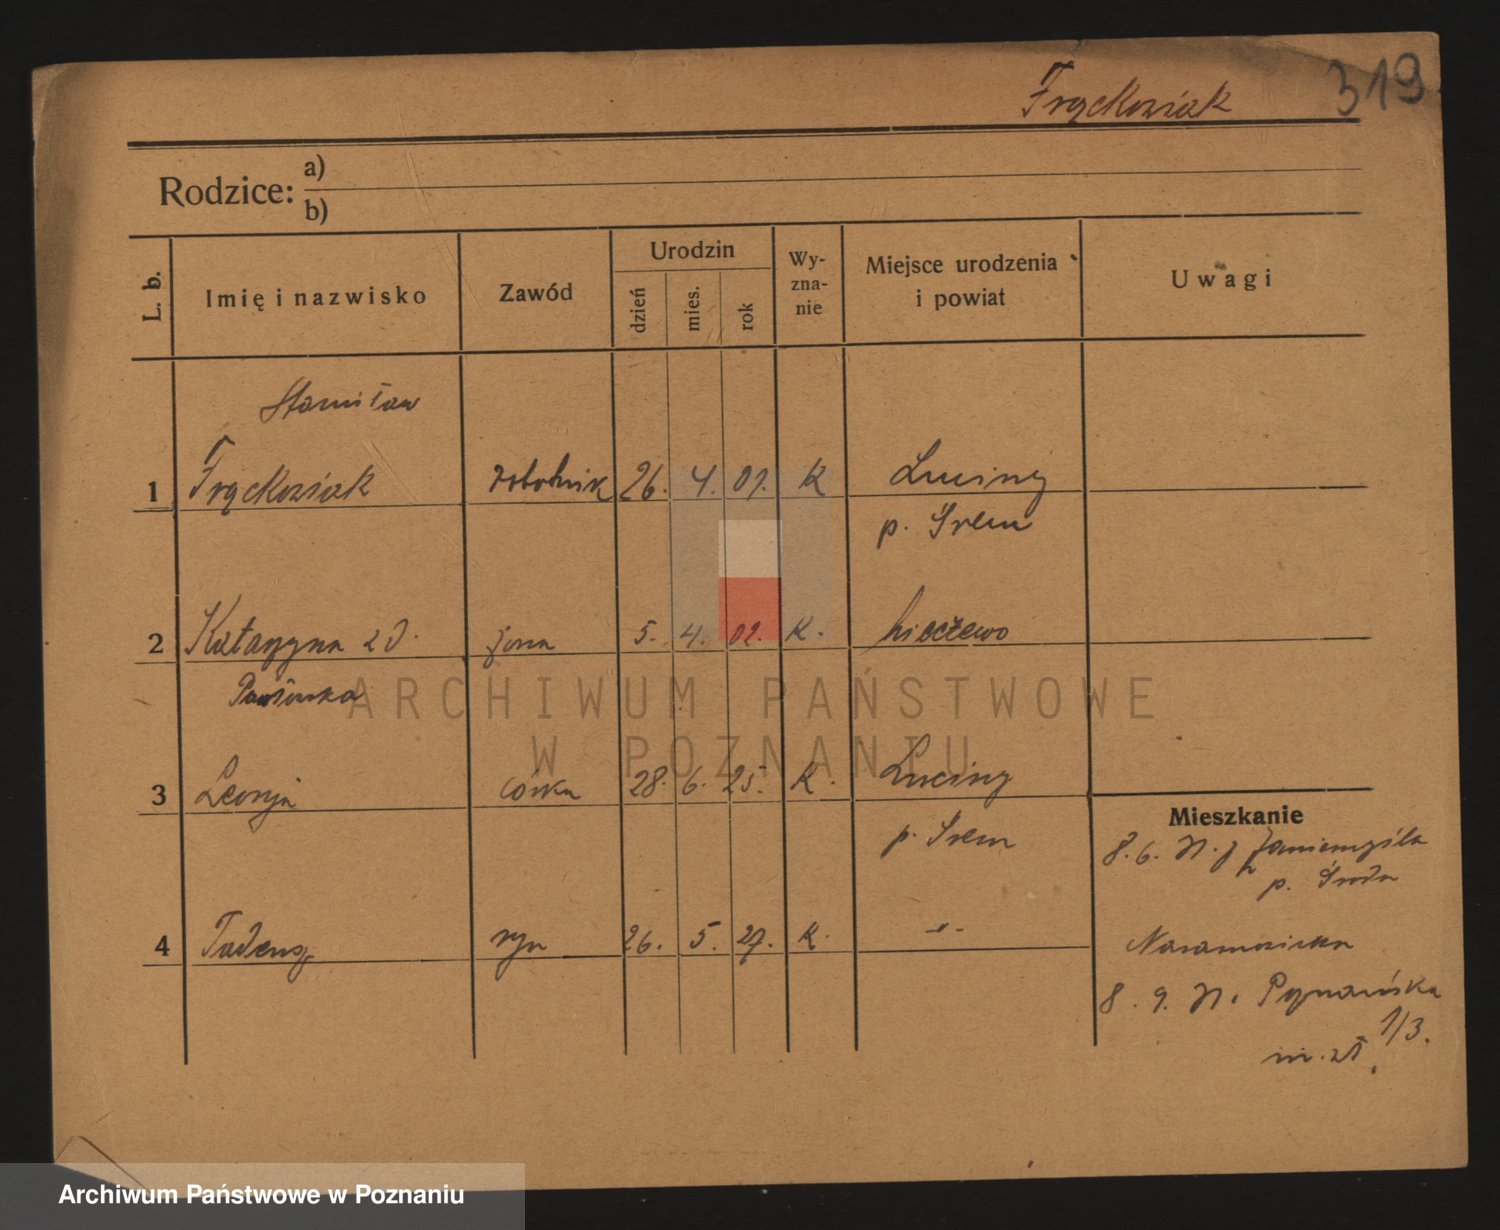 Frąckowiak 319
Rodzice: a)
b)
L. b. Imię i nazwisko Zawód Urodzin dzień mies. rok Wy-zna-nie Miejsce urodzenia i powiat Uwagi
Stanisław
1 Frąckowiak robotnik 26. 4. 01. K Luciny
p. Śrem
2 Katarzyna zd. żona 5. 4. 02. K.
3 Leonja córka 28. 6. 25. K. Luciny
p. Śrem
4 Tadeusz syn 26. 5. 27. K. -"-
Mieszkanie
8. 6. z Zaniemyśla
p. Środa
Naramowicka
8. 9. Poznańska
1/3.
ARCHIWUM PAŃSTWOWE
W POZNANIU
Archiwum Państwowe w Poznaniu